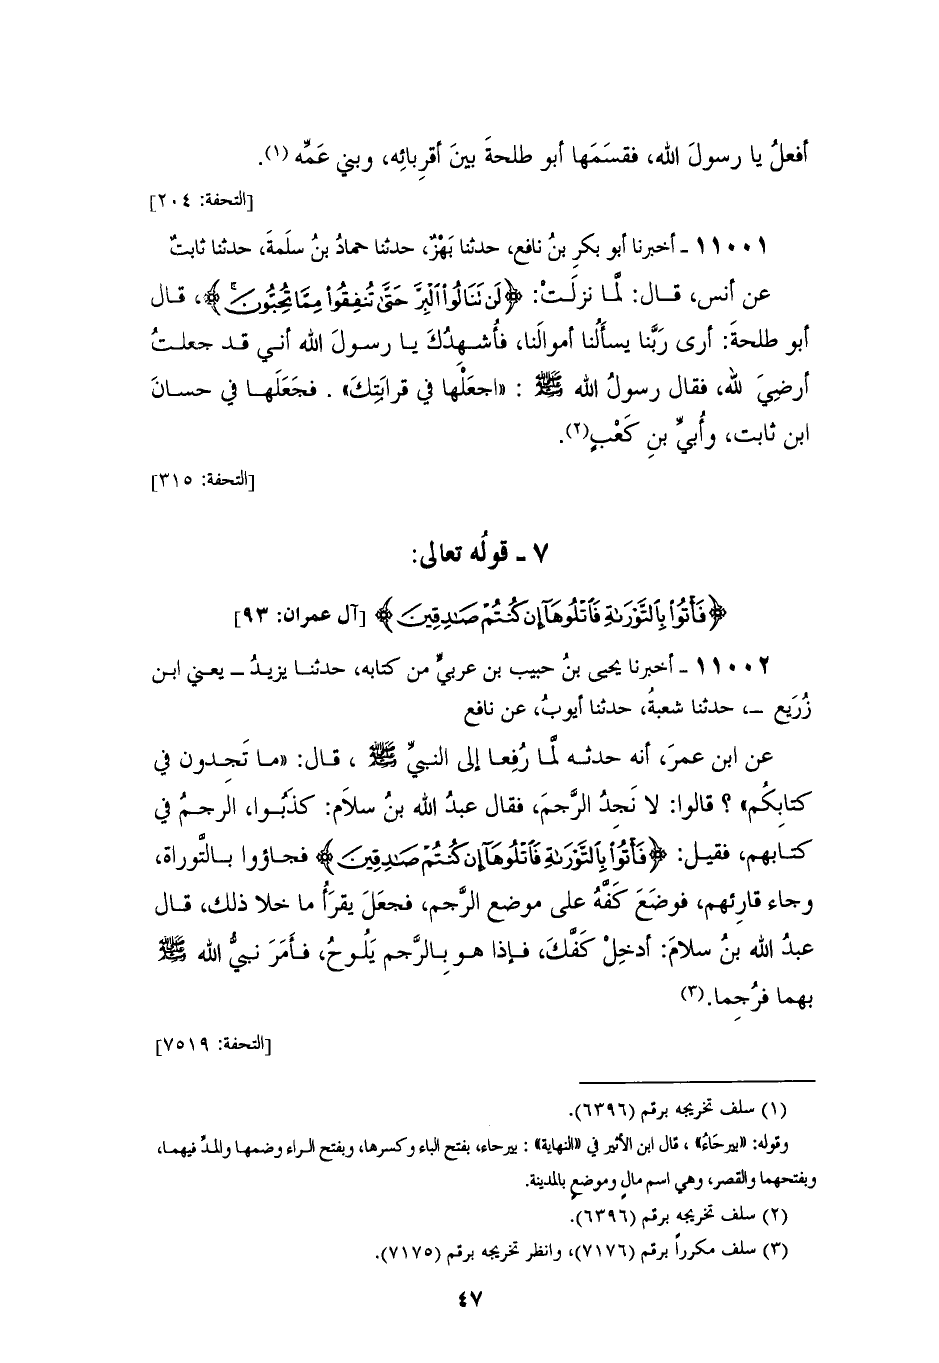 أفعلُ يا رسولَ الله، فقسَمَها أبو طلحةَ بينَ أقرِبائِه، وبني عَمِّه (١).
[التحفة: ٢٠٤]
١١٠٠١ ـ أخبرنا أبو بكرِ بنُ نافع، حدثنا بَهْزٌ، حدثنا حمادُ بنُ سلَمةَ، حدثنا ثابتٌ
عن أنس، قال: لَّما نزلَتْ: ﴿لَن تَنَالُوا۟ ٱلْبِرَّ حَتَّىٰ تُنفِقُوا۟ مِمَّا تُحِبُّونَ ۚ﴾، قال
أبو طلحةَ: أرى رَبَّنا يسأَلُنا أموالَنا، فأُشهِدُكَ يا رسولَ الله أني قد جعلتُ
أرضِيَ لله، فقال رسولُ الله ﷺ : «اجعَلْها في قرابَتِكَ» . فجَعَلَها في حسانَ
ابن ثابت، وأُبيِّ بنِ كَعْبٍ(٢).
[التحفة: ٣١٥]
٧ ـ قولُه تعالى:
﴿فَأْتُوا۟ بِٱلتَّوْرَىٰةِ فَٱتْلُوهَآ إِن كُنتُمْ صَـٰدِقِينَ﴾ [آل عمران: ٩٣]
١١٠٠٢ ـ أخبرنا يحيى بنُ حبيب بن عربيٍّ من كتابه، حدثنا يزيدُ ــ يعني ابن
زُرَيع ــ، حدثنا شعبةُ، حدثنا أيوبُ، عن نافع
عن ابن عمرَ، أنه حدثه لَّما رُفِعا إلى النبيِّ ﷺ ، قال: «ما تَجِدون في
كتابِكُم» ؟ قالوا: لا نَجِدُ الرَّجمَ، فقال عبدُ الله بنُ سلاَم: كذَبُوا، الرجمُ في
كتابهم، فقيل: ﴿فَأْتُوا۟ بِٱلتَّوْرَىٰةِ فَٱتْلُوهَآ إِن كُنتُمْ صَـٰدِقِينَ﴾ فجاؤوا بالتَّوراة،
وجاء قارِئهم، فوضَعَ كَفَّهُ على موضع الرَّجم، فجعَلَ يقرَأُ ما خلا ذلك، قال
عبدُ الله بنُ سلامَ: أدخِلْ كَفَّكَ، فإذا هو بالرَّجم يَلُوحُ، فأمَرَ نبيُّ الله ﷺ
بهما فرُجِما.(٣)
[التحفة: ٧٥١٩]
(١) سلف تخريجه برقم (٦٣٩٦).
وقوله: «بيرحَاءُ» ، قال ابن الأثير في «النهاية» : بيرحاء، بفتح الباء وكسرها، وبفتح الراء وضمها والمدِّ فيهما،
وبفتحهما والقصر، وهي اسم مالٍ وموضعٍ بالمدينة.
(٢) سلف تخريجه برقم (٦٣٩٦).
(٣) سلف مكرراً برقم (٧١٧٦)، وانظر تخريجه برقم (٧١٧٥).
٤٧